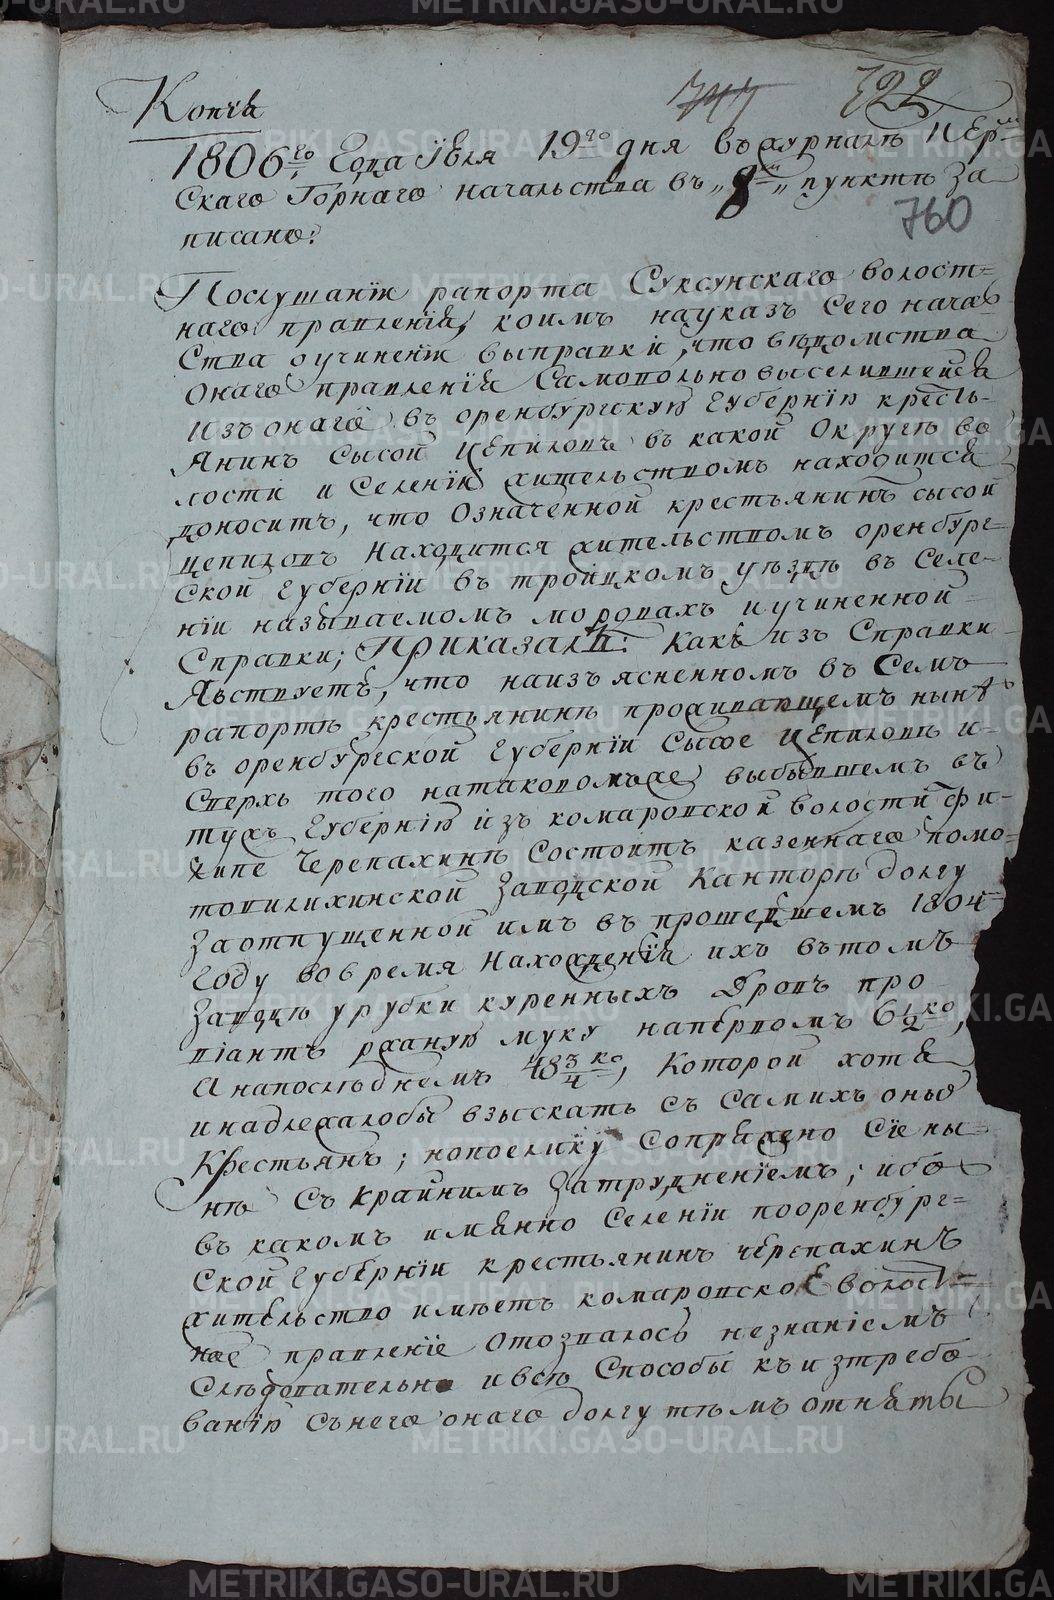 Копия
747 722
1806го Года Июля 19го дня въ журналѣ Перм
скаго Горнаго начальства въ „8м„ пунктѣ за
760
писано:
Послушаніи рапорта Суксунскаго волост=
наго правленія, коимъ науказъ Сего началь
Ства оучиненіи выправки, что вѣдомства
Онаго правленія Самовольно выселившейся
Изъ онаго въ оренбургскую Губернію кресть-
Янинъ Сысой Щепиловъ въ какой Округѣ во
лости и Селеніи жительствомъ находится
доноситъ, что Означенной крестьянинъ сысой
щепиловъ Находится жительствомъ оренбург=
ской Губерніи въ тройцкомъ уѣздѣ въ Селе-
ніи называемомъ моровахъ иучиненной
Справки; Приказали: Какъ изъ Справки
Явствуетъ, что наизъясненномъ въ Семъ
рапортѣ крестьянинѣ проживающемъ нынѣ
въ оренбургской Губерніи Сысое Щепиловѣ и-
Сверхъ того натаковомъже выбывшемъ въ
туже Губернію изъ комаровской волости фи-
липе Черепахинѣ Состоитъ казеннаго помо-
товилихинской Заводской Канторѣ долгу
Заотпущенной имъ въ прошедшемъ 1804
Году вовремя Нахожденія ихъ вътомъ
Заводѣ урубки куренныхъ Дровъ про
віантъ ржаную муку наперьвомъ 6 1/2 ко,
А напослѣднемъ 48 3/4 ко, Которой хотя
инадлежалобы взыскать съ Самихъ оныхъ
Крестьянъ; нопоелику Сопряжено Сіе ны-
нѣ Съ Крайнимъ Затрудненіемъ; ибо
въ какомъ имянно Селеніи пооренбург=
Ской Губерніи крестьянинъ черепахинъ
жительство имѣетъ комаровское волост=
ное правленіе Отозвалось незнаніемъ
Слѣдовательно ивсѣ Способы къ изтребо-
ванію Съ него онаго долгу тѣмъ отняты
METRIKI.GASO-URAL.RU